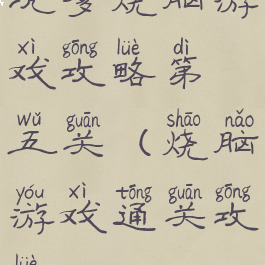 烧脑游
xì gōng lüè dì
戏攻略第
wǔ guān shāo nǎo
五关(烧脑
yóu xì tōng guān gōng
游戏通关攻
lüè